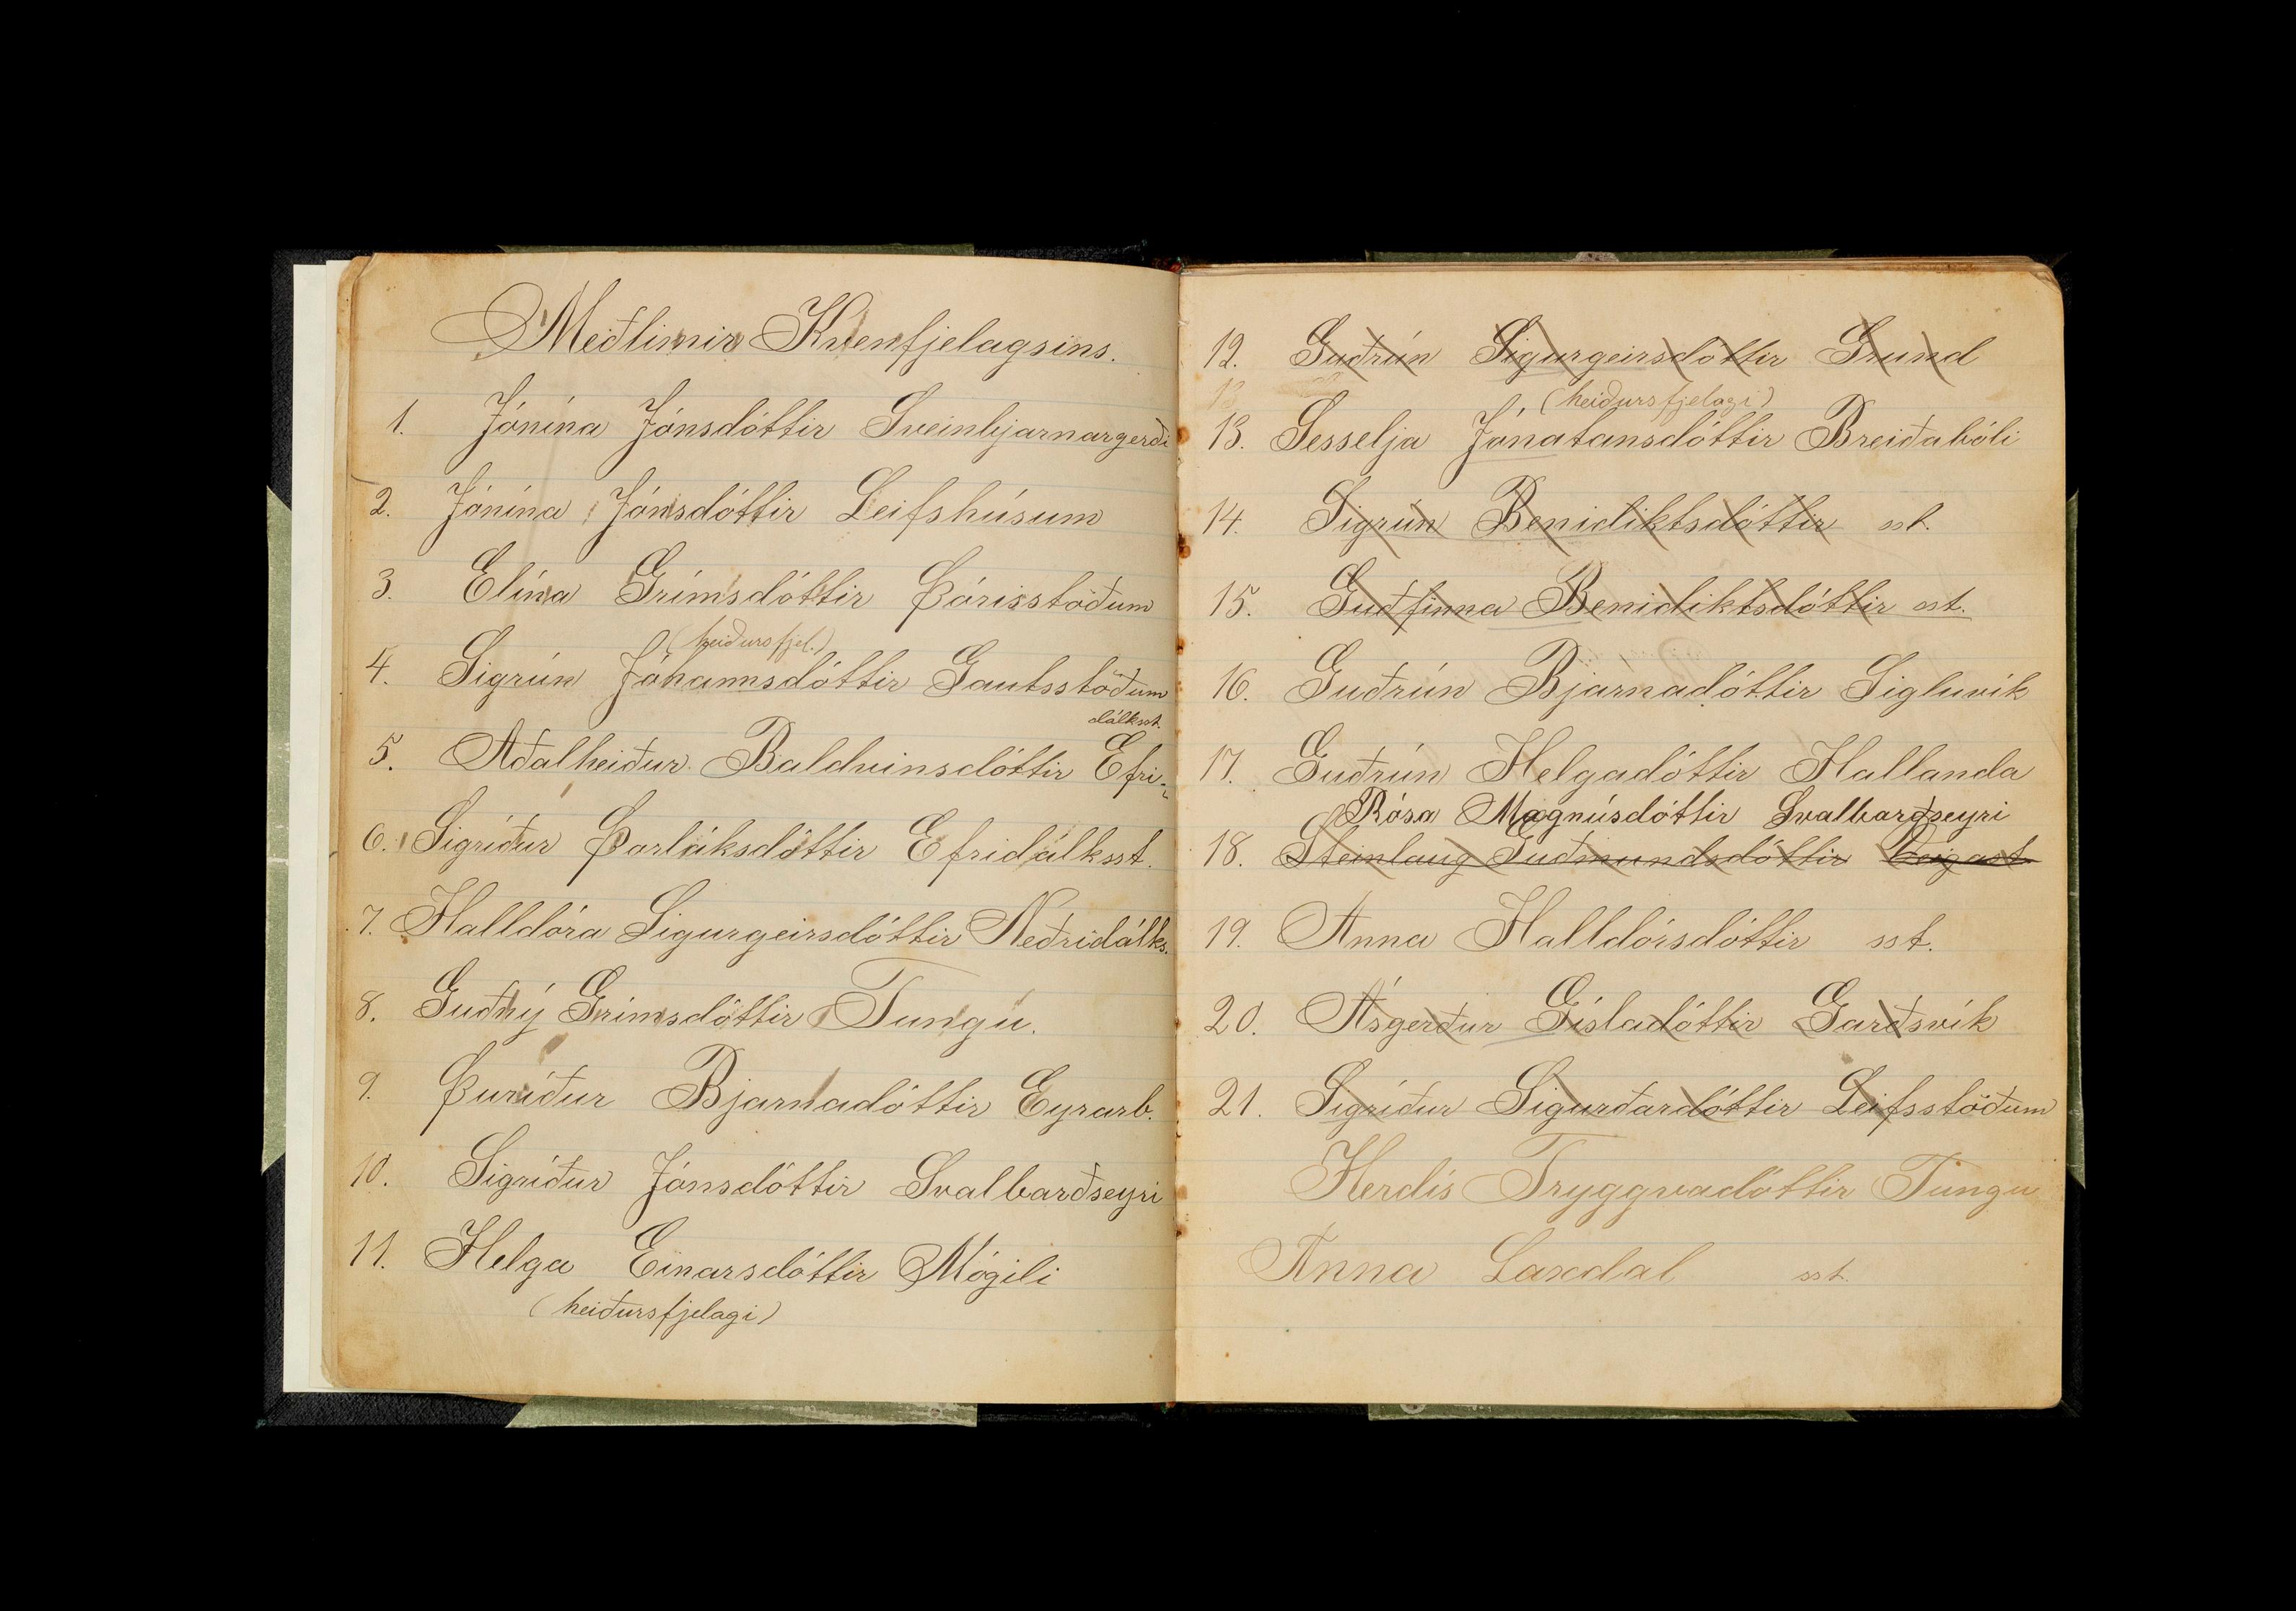 Meðlimir Kvenfjelagsins.
1. Jónína Jónsdóttir Sveinbjarnargerði
2. Jónína Jónsdóttir Leifshúsum
3. Elína Grímsdóttir Þórisstöðum
(heiðursfjel.)
4. Sigrún Jóhannsdóttir Gautsstöðum
dálksst.
5. Aðalheiður Baldvinsdóttir Efri-
6. Sigríður Þorláksdóttir Efridálksst.
7. Halldóra Sigurgeirsdóttir Neðridálks.
8. Guðný Grímsdóttir Tungu.
9. Þuríður Bjarnadóttir Eyrarb.
10. Sigríður Jónsdóttir Svalbarðseyri
11. Helga Einarsdóttir Mógili
(heiðursfjelagi)
12. Guðrún Sigurgeirsdóttir Grund
(heiðursfjelagi)
13. Sesselja Jónatansdóttir Breiðabóli
14. Sigrún Benidiktsdóttir sst.
15. Guðfinna Benidiktsdóttir sst.
16. Guðrún Bjarnadóttir Sigluvík
17. Guðrún Helgadóttir Hallanda
Rósa Magnúsdóttir Svalbarðseyri
18. Steinlaug Guðmundsdóttir
19. Anna Halldórsdóttir sst.
20. Ásgerður Gísladóttir Garðsvík
21. Sigríður Sigurðardóttir Leifsstöðum
Herdís Tryggvadóttir Tungu
Anna Laxdal sst.